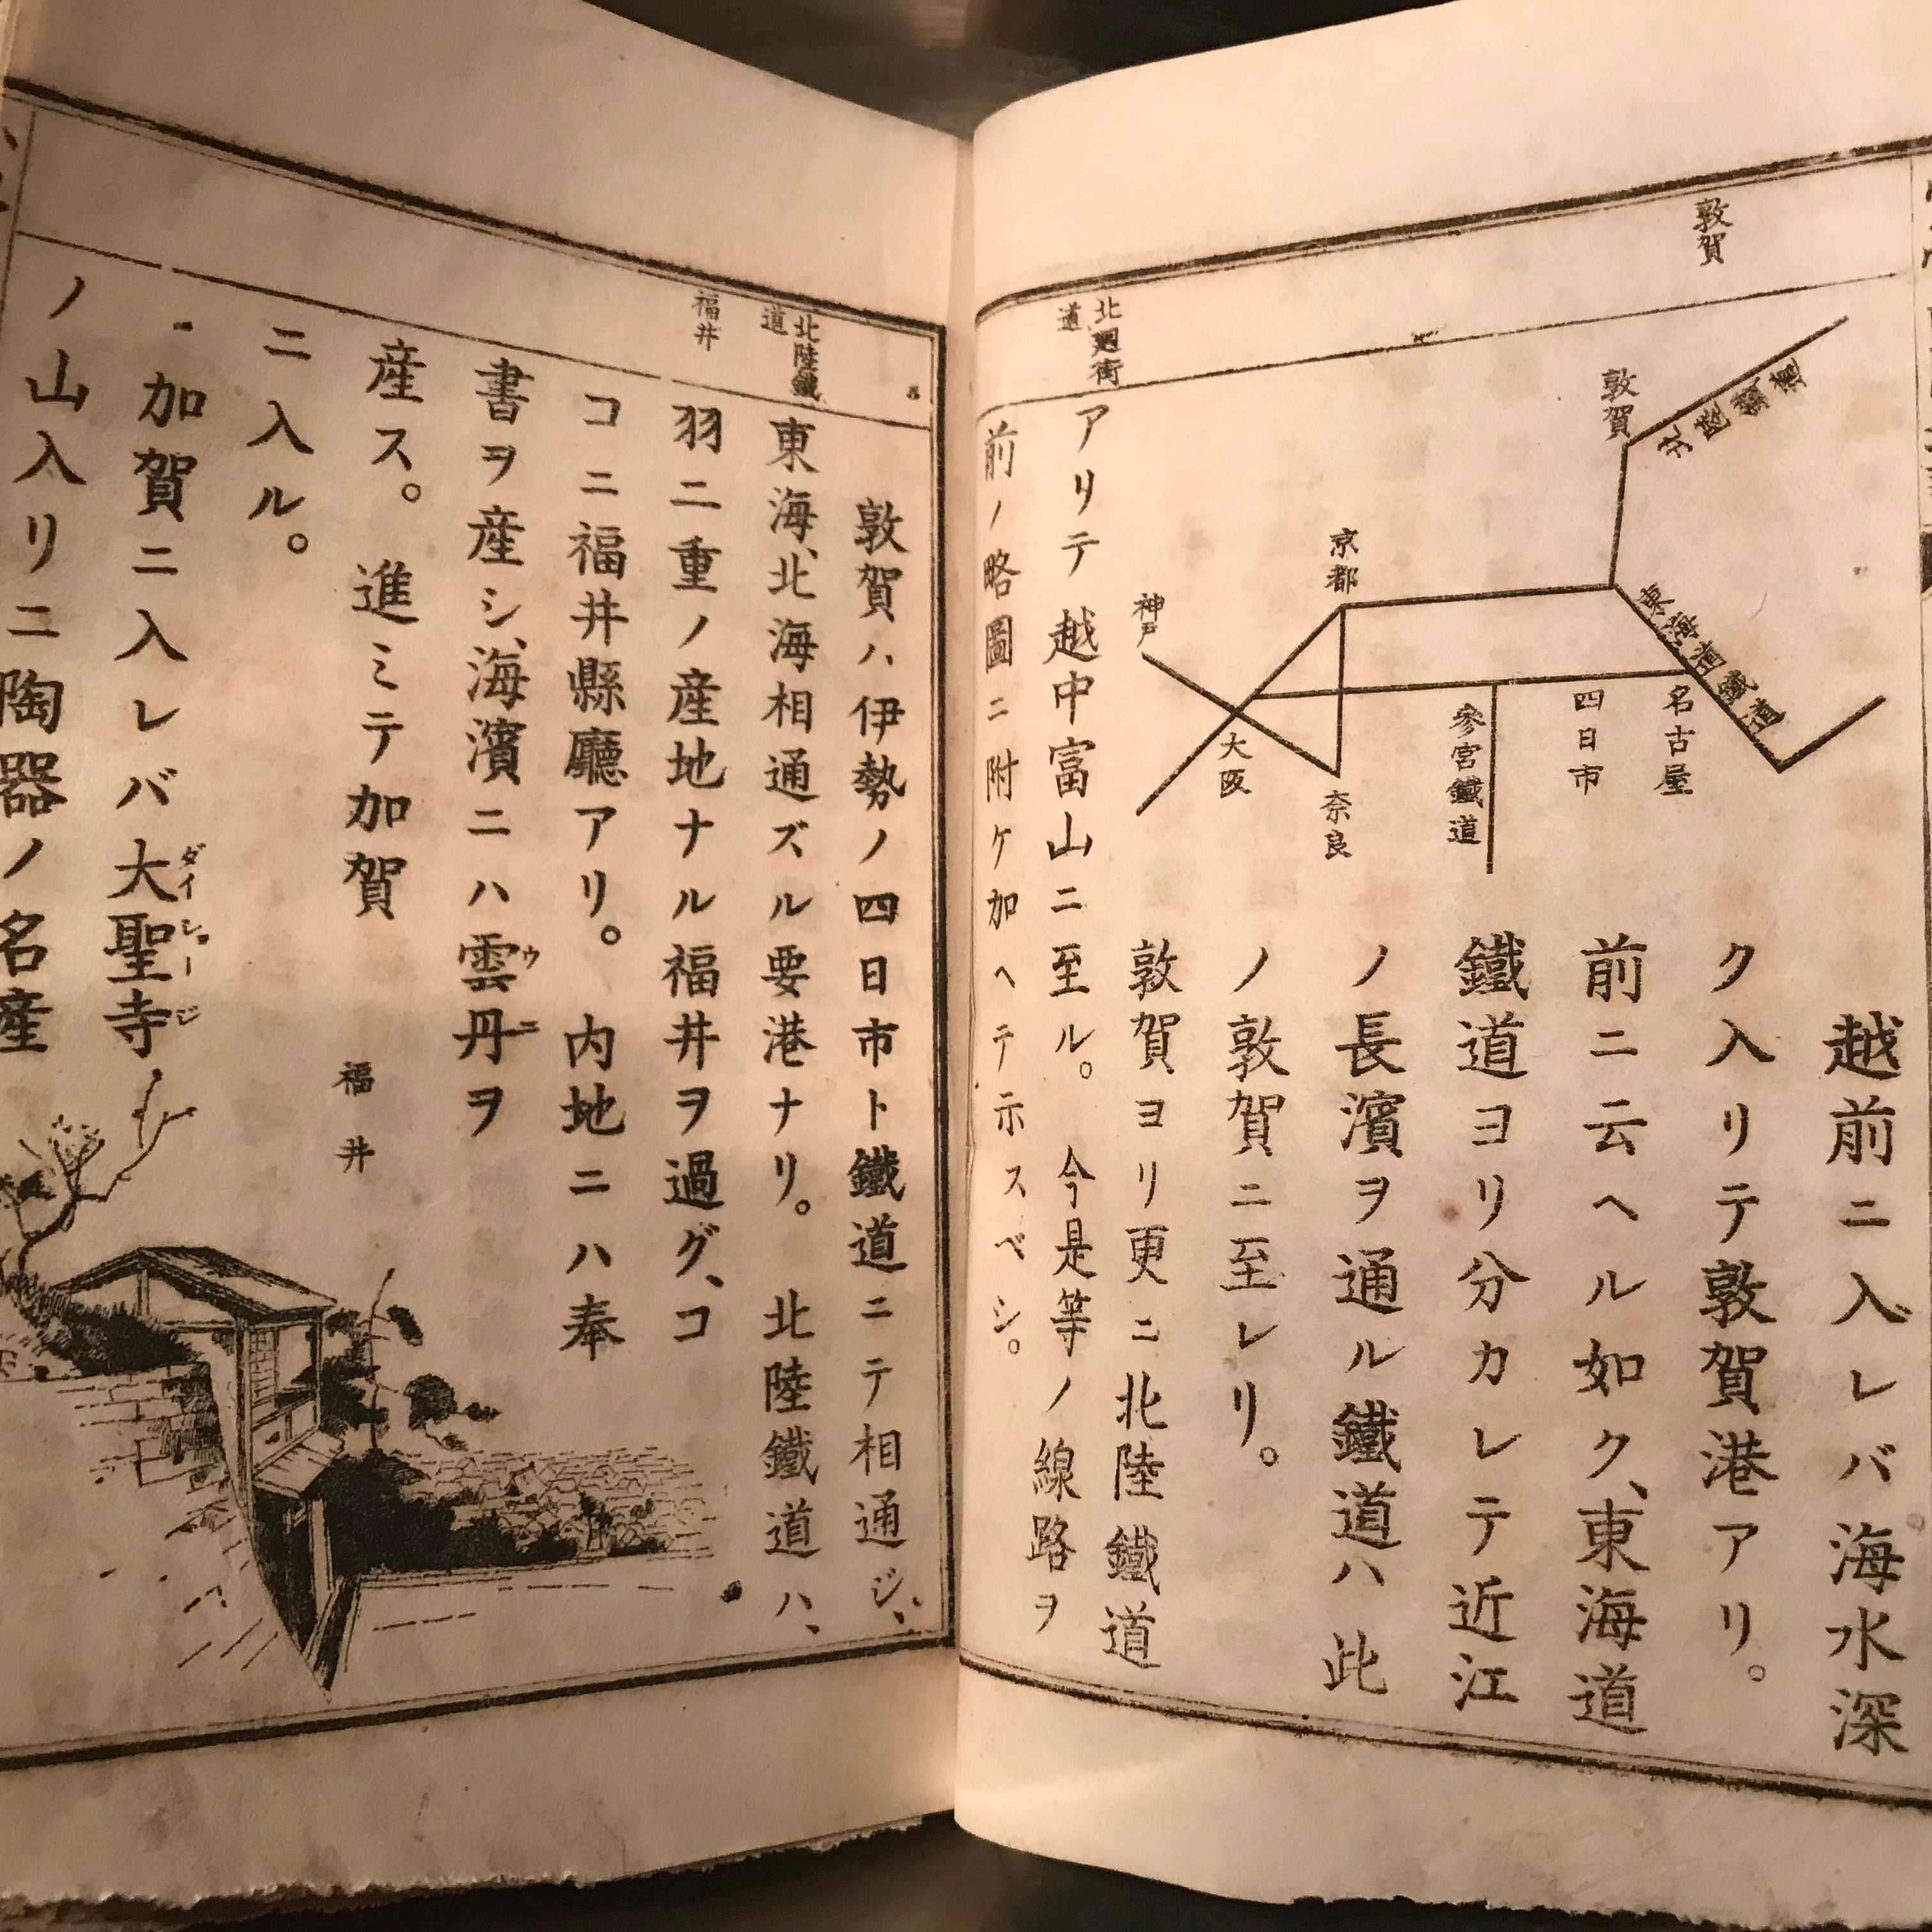 敦賀
北陸鐵道
敦賀
東海道鐵道
京都
神戸
大阪
奈良
參宮鐵道
四日市
名古屋
越前ニ入レバ海水深
ク入リテ敦賀港アリ。
前ニ云ヘル如ク、東海道
鐵道ヨリ分カレテ近江
ノ長濱ヲ通ル鐵道ハ此
ノ敦賀ニ至レリ。
敦賀ヨリ更ニ北陸鐵道
北廻街
道
アリテ越中富山ニ至ル。今是等ノ線路ヲ
前ノ略圖ニ附ケ加ヘテ示スベシ。
敦賀ハ伊勢ノ四日市ト鐵道ニテ相通ジ、
北陸鐵
道
東海、北海相通ズル要港ナリ。北陸鐵道ハ、
福井
羽二重ノ産地ナル福井ヲ過グ、コ
コニ福井縣廳アリ。内地ニハ奉
書ヲ産シ、海濱ニハ雲丹ヲ
ウニ
産ス。進ミテ加賀
福井
ニ入ル。
加賀ニ入レバ大聖寺
ダイショージ
ノ山入リニ陶器ノ名産